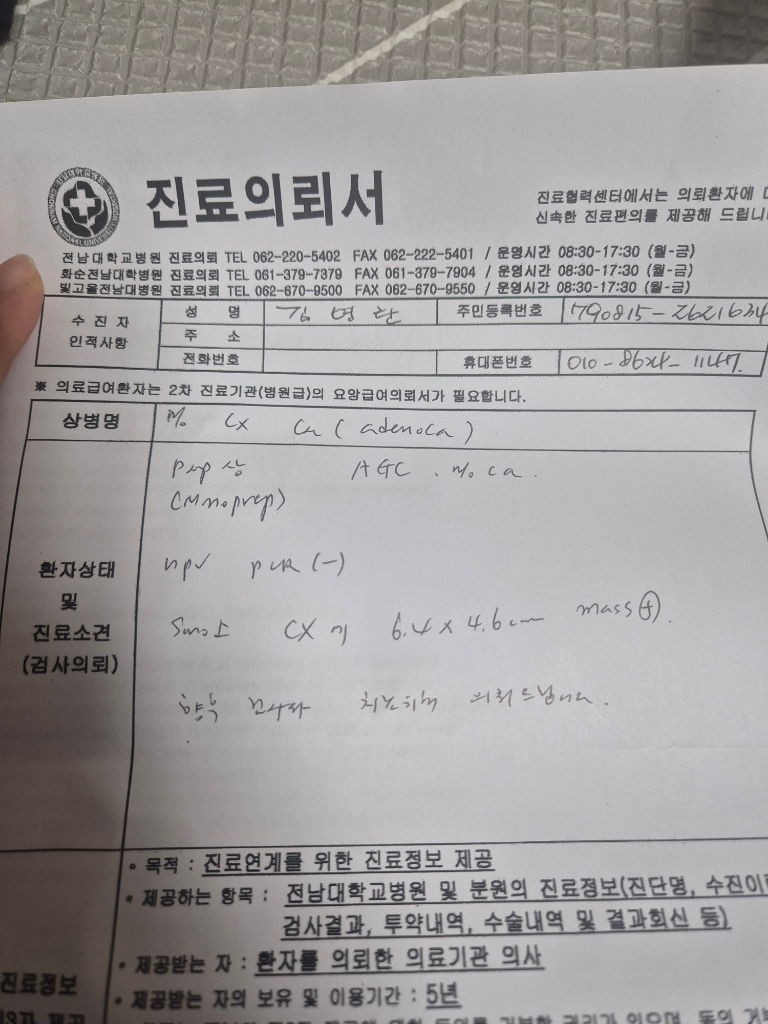 진료의뢰서
진료협력센터에서는 의뢰환자에
신속한 진료편의를 제공해 드립니
전남대학교병원 진료의뢰 TEL 062-220-5402 FAX 062-222-5401 / 운영시간 08:30-17:30 (월-금)
화순전남대학병원 진료의뢰 TEL 061-379-7379 FAX 061-379-7904 / 운영시간 08:30-17:30 (월-금)
빛고을전남대병원 진료의뢰 TEL 062-670-9500 FAX 062-670-9550 / 운영시간 08:30-17:30 (월-금)
수진자 인적사항
성 명 김명란 주민등록번호 790815-2621634
주 소
전화번호 휴대폰번호 010-8624-1147
※ 의료급여환자는 2차 진료기관(병원급)의 요양급여의뢰서가 필요합니다.
상병명 r/o Cx Ca (adenoca)
환자상태 및 진료소견 (검사의뢰)
pap상 AGC. r/o ca.
HPV PCR (-)
Sono상 CX에 6.4 x 4.6cm mass(+).
의뢰드립니다.
• 목적 : 진료연계를 위한 진료정보 제공
• 제공하는 항목 : 전남대학교병원 및 분원의 진료정보(진단명, 수진이
검사결과, 투약내역, 수술내역 및 결과회신 등)
• 제공받는 자 : 환자를 의뢰한 의료기관 의사
진료정보
• 제공받는 자의 보유 및 이용기간 : 5년